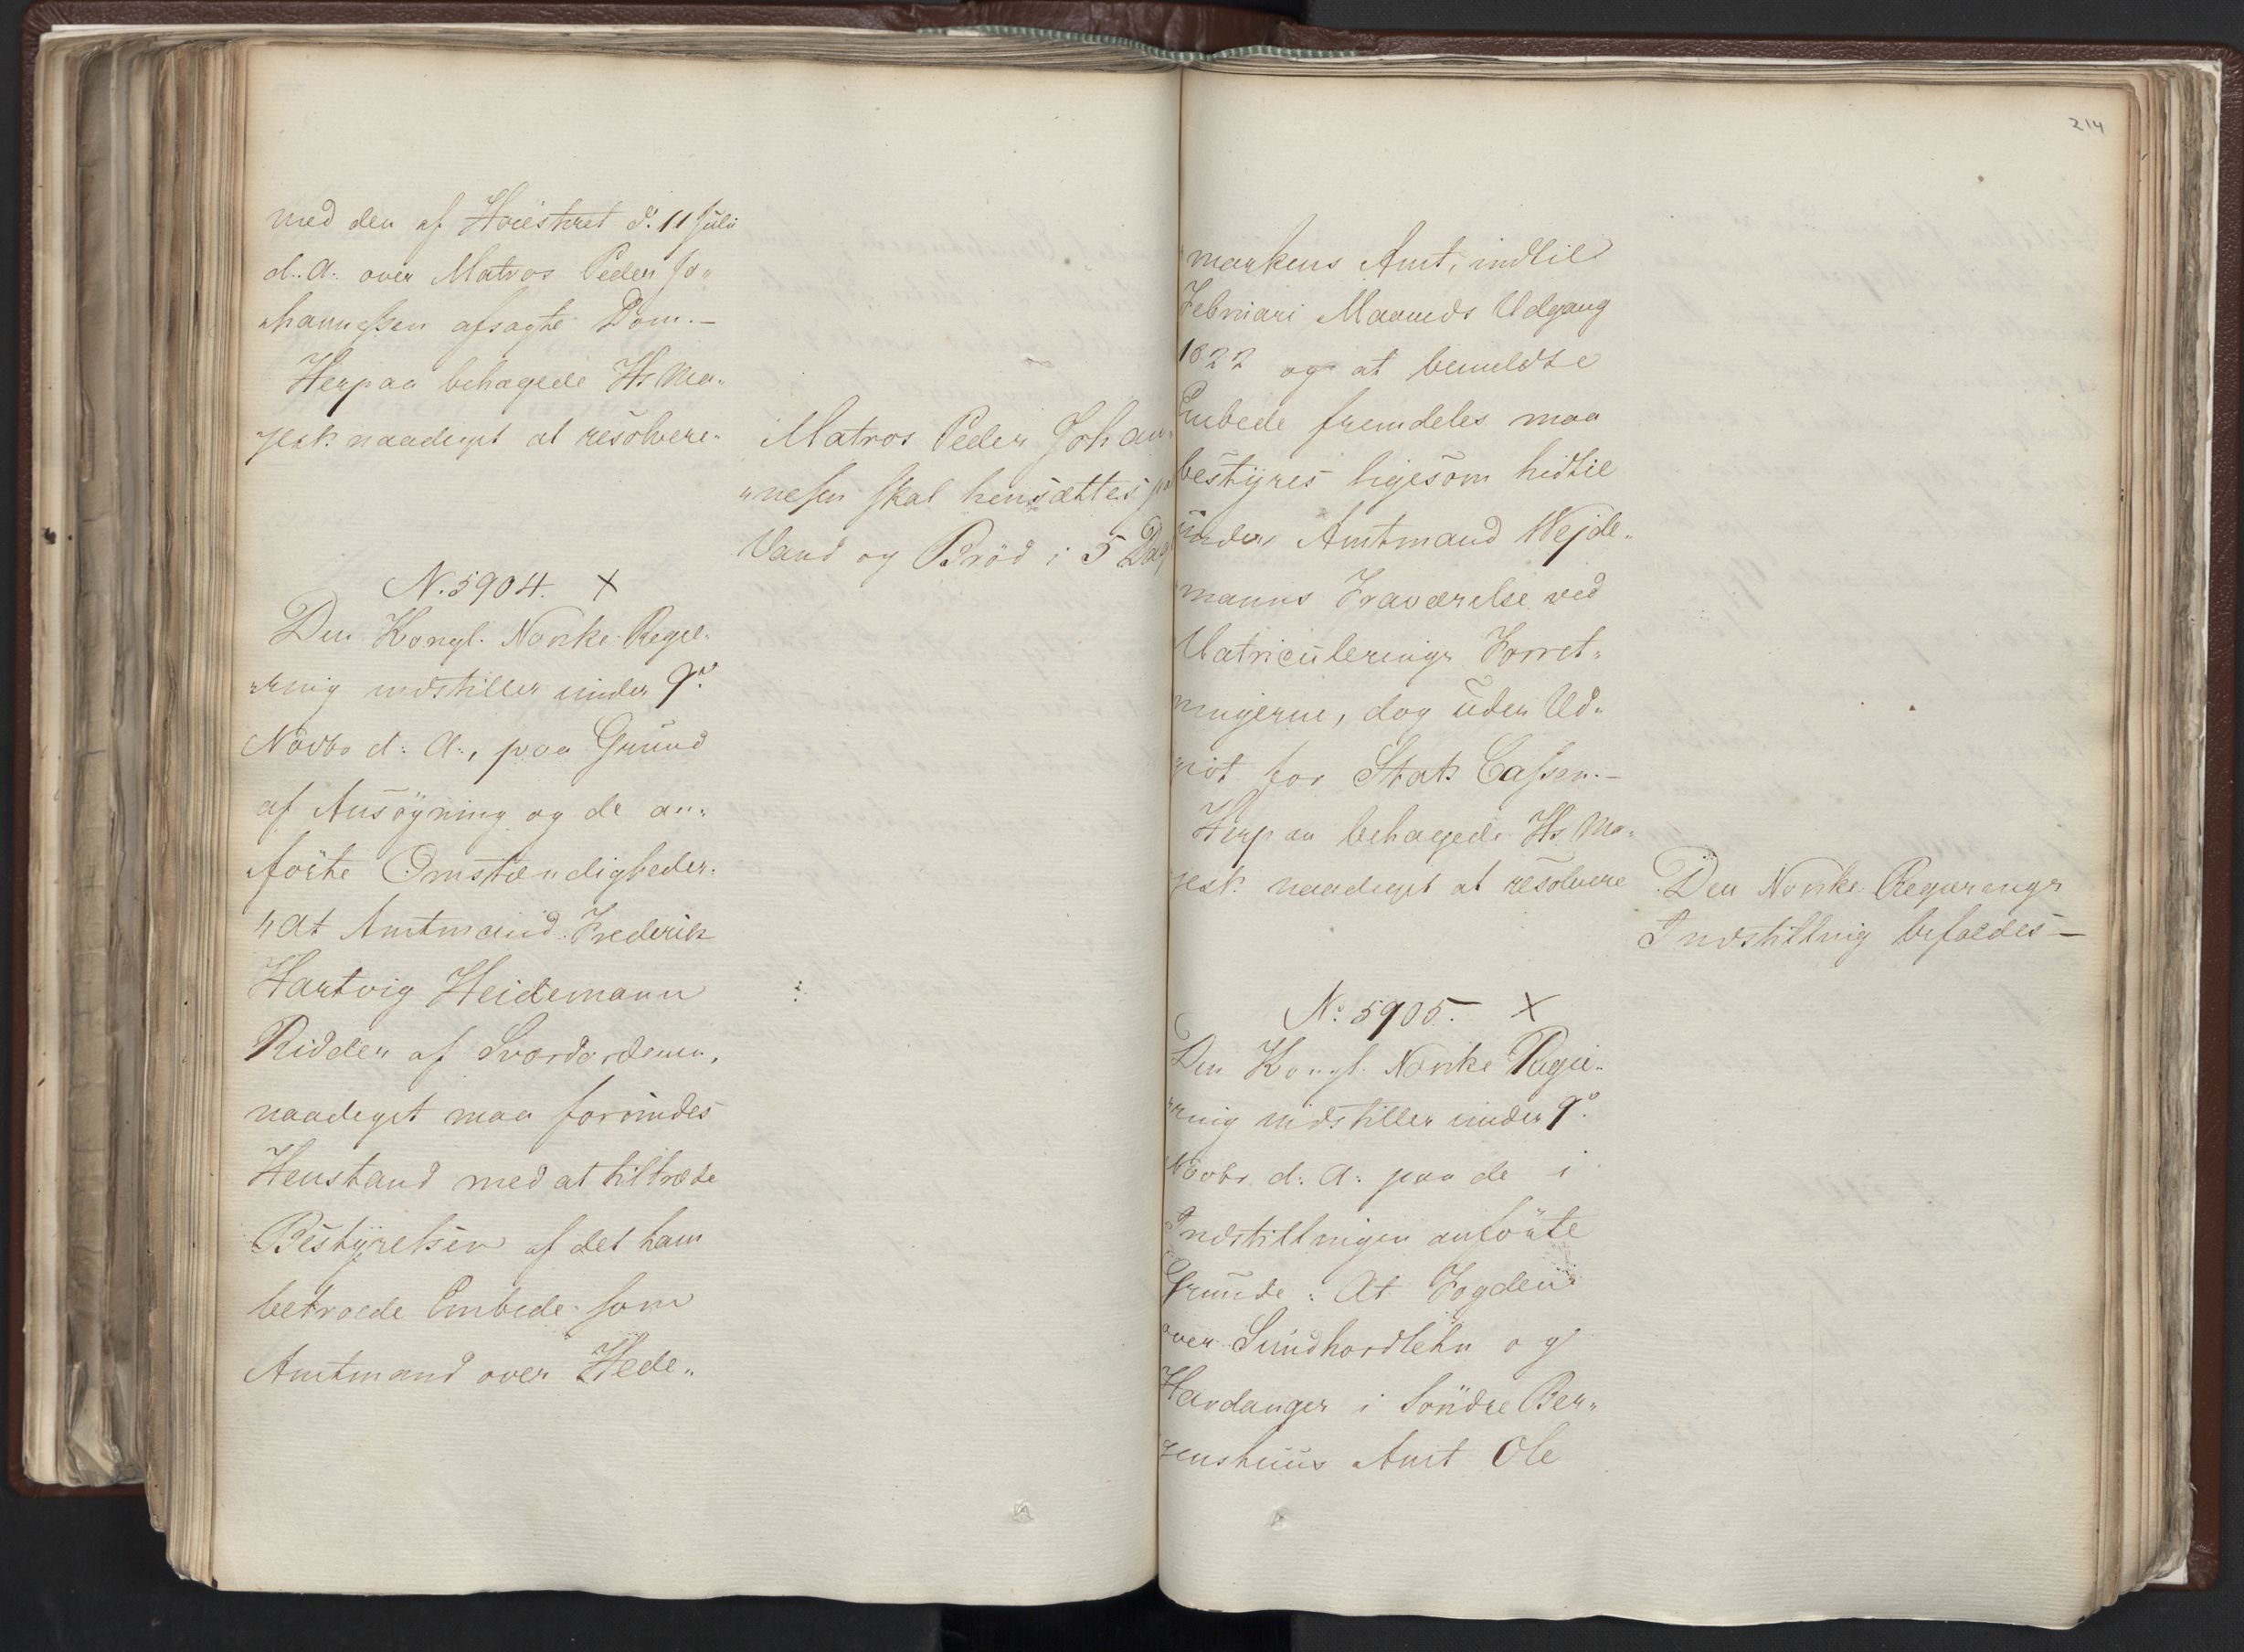 med den af Höiestret d: 11 Julii
d. A: over Matros Peder Jo„
„hannessen afsagte Dom.—
Herpaa behagede Hs Ma„
jest: naadigst at resolvere„
Matros Peder Johan„
„nesen skal hensættes paa
Vand og Bröd i 5 Dage
N. 5904. X
Den Kongl. Norske Regie„
„ring indstiller under 9de
Novbr d: A:, paa Grund
af Ansögning og de an„
förte Omstændigheder:
„At Amtmand Frederik
Hartvig Heidemann
Ridder af Sværdordenen,
naadigst maa forundes
Henstand med at tiltræde
Bestÿrelsen af det ham
betroede Embede som
Amtmand over Hede„
214
„markens Amt, indtil
Februari Maaneds Udgang
1822 og at bemeldte
Embede fremdeles maa
bestÿres ligesom hidtil
under Amtmand Wejde„
„manns Fraværelse ved
Matriculerings Forret„
„ningerne, dog uden Ud„
„givt for Stats Cassen.—
Herpaa behagede Hs Ma„
jest: naadigst at resolvere
Den Norske Regierings
Indstilling bifaldes—
No: 5905. X
Den Kongl. Norske Regie„
„ring indstiller under 9de
Novbr d: A: paa de i
Indstillingen anförte
Grunde: At Fogden
over Sundhordlehn og
Hardanger i Söndre Ber„
genshuus Amt Ole